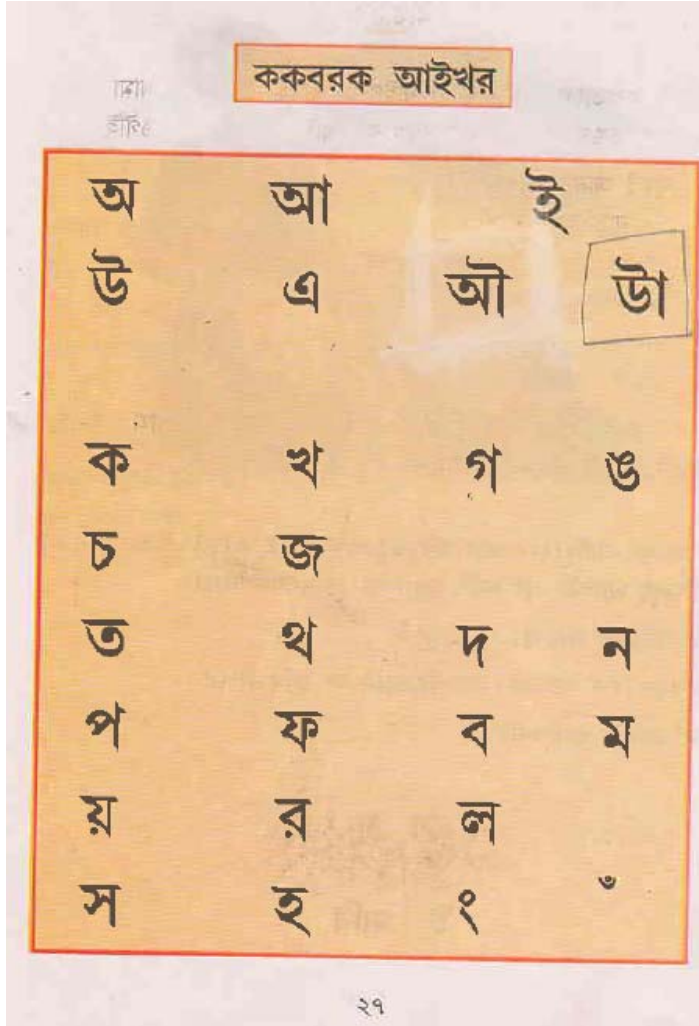 ককবরক আইখর
অ আ ই
উ এ আী উা
ক খ গ ঙ
চ জ
ত থ দ ন
প ফ ব ম
য় র ল
স হ ং ঁ
২৭